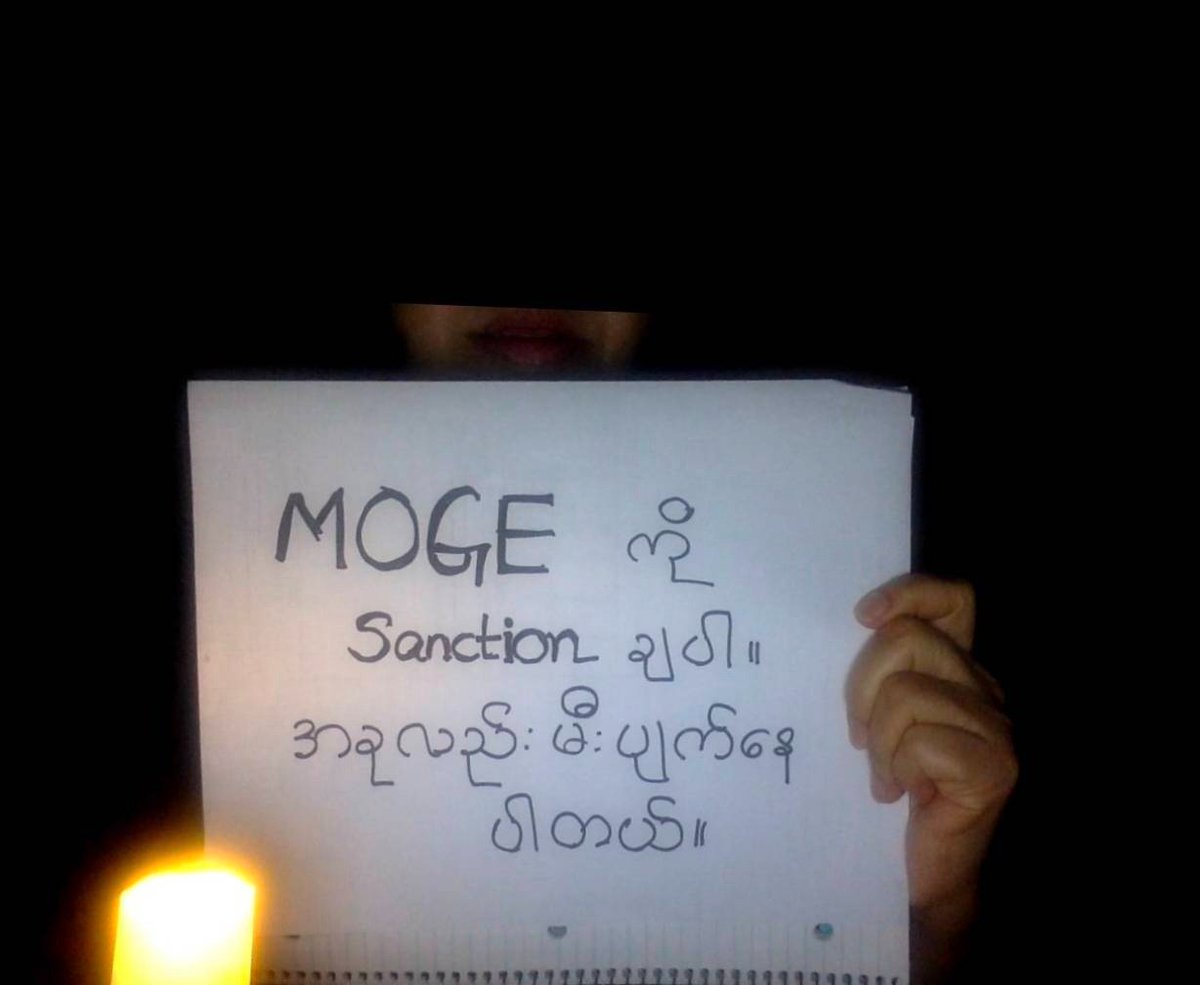 MOGE ကို
Sanction ချပါ။
အခုလည်း မီးပျက်နေ
ပါတယ်။